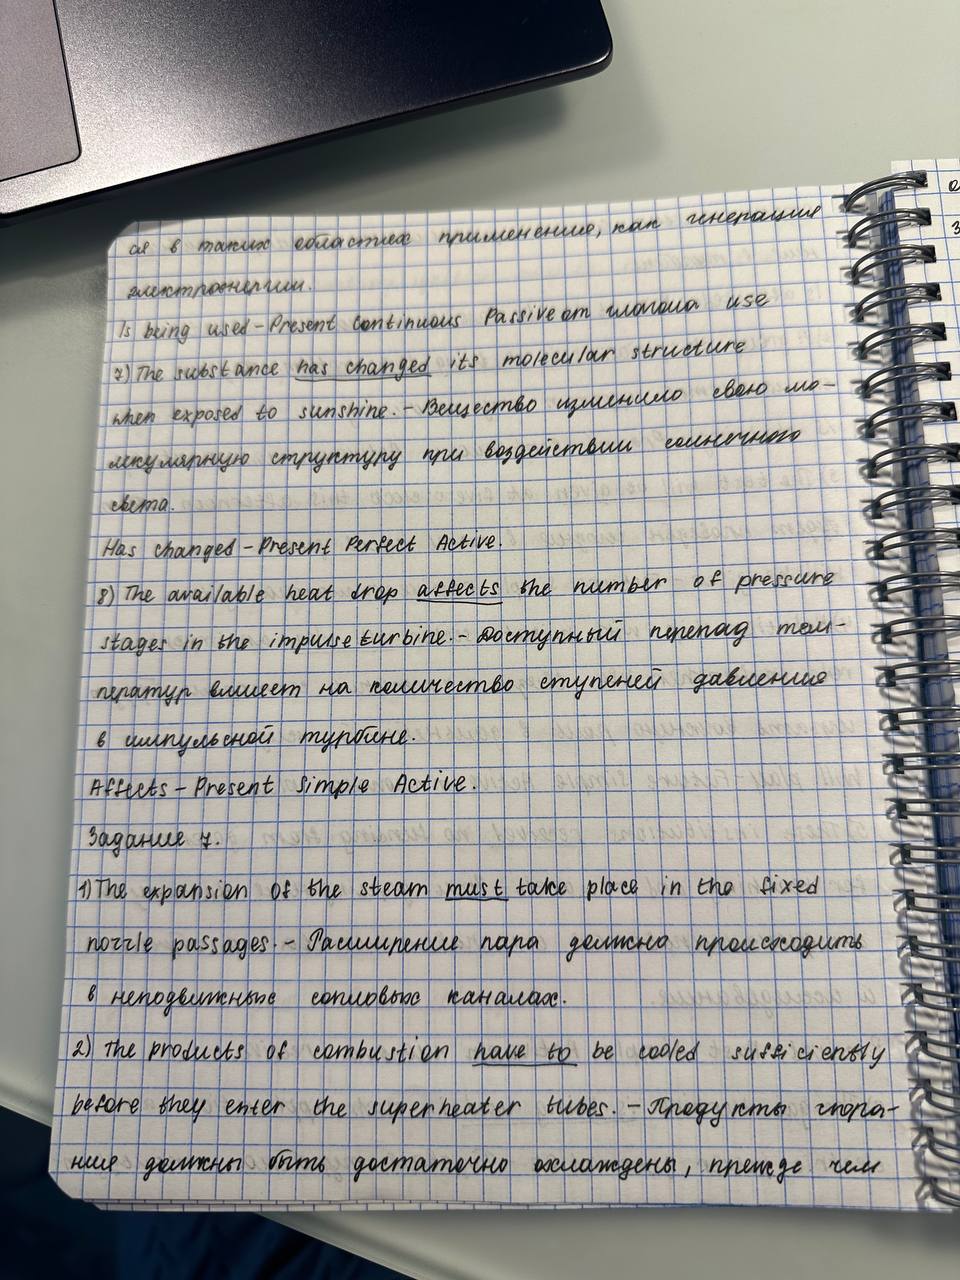 ся в таких областях применения, как генерация
электроэнергии.
Is being used – Present Continuous Passive от глагола use
7) The substance has changed its molecular structure
when exposed to sunshine. – Вещество изменило свою мо-
лекулярную структуру при воздействии солнечного
света.
Has changed – Present Perfect Active.
8) The available heat drop affects the number of pressure
stages in the impulse turbine. – Доступный перепад тем-
ператур влияет на количество ступеней давления
в импульсной турбине.
Affects – Present Simple Active.
Задание 7.
1) The expansion of the steam must take place in the fixed
nozzle passages. – Расширение пара должно происходить
в неподвижных сопловых каналах.
2) The products of combustion have to be cooled sufficiently
before they enter the superheater tubes. – Продукты сгора-
ния должны быть достаточно охлаждены, прежде чем